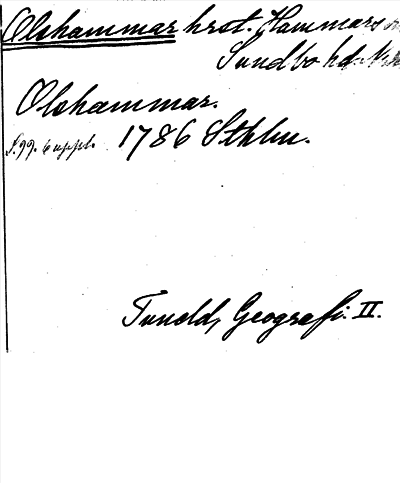 Olshammar hrst. Hammars
Sundbo hd.
Olshammar.
S. 99. 6 uppl. 1786 Sthlm.
Tuneld, Geografi. II.